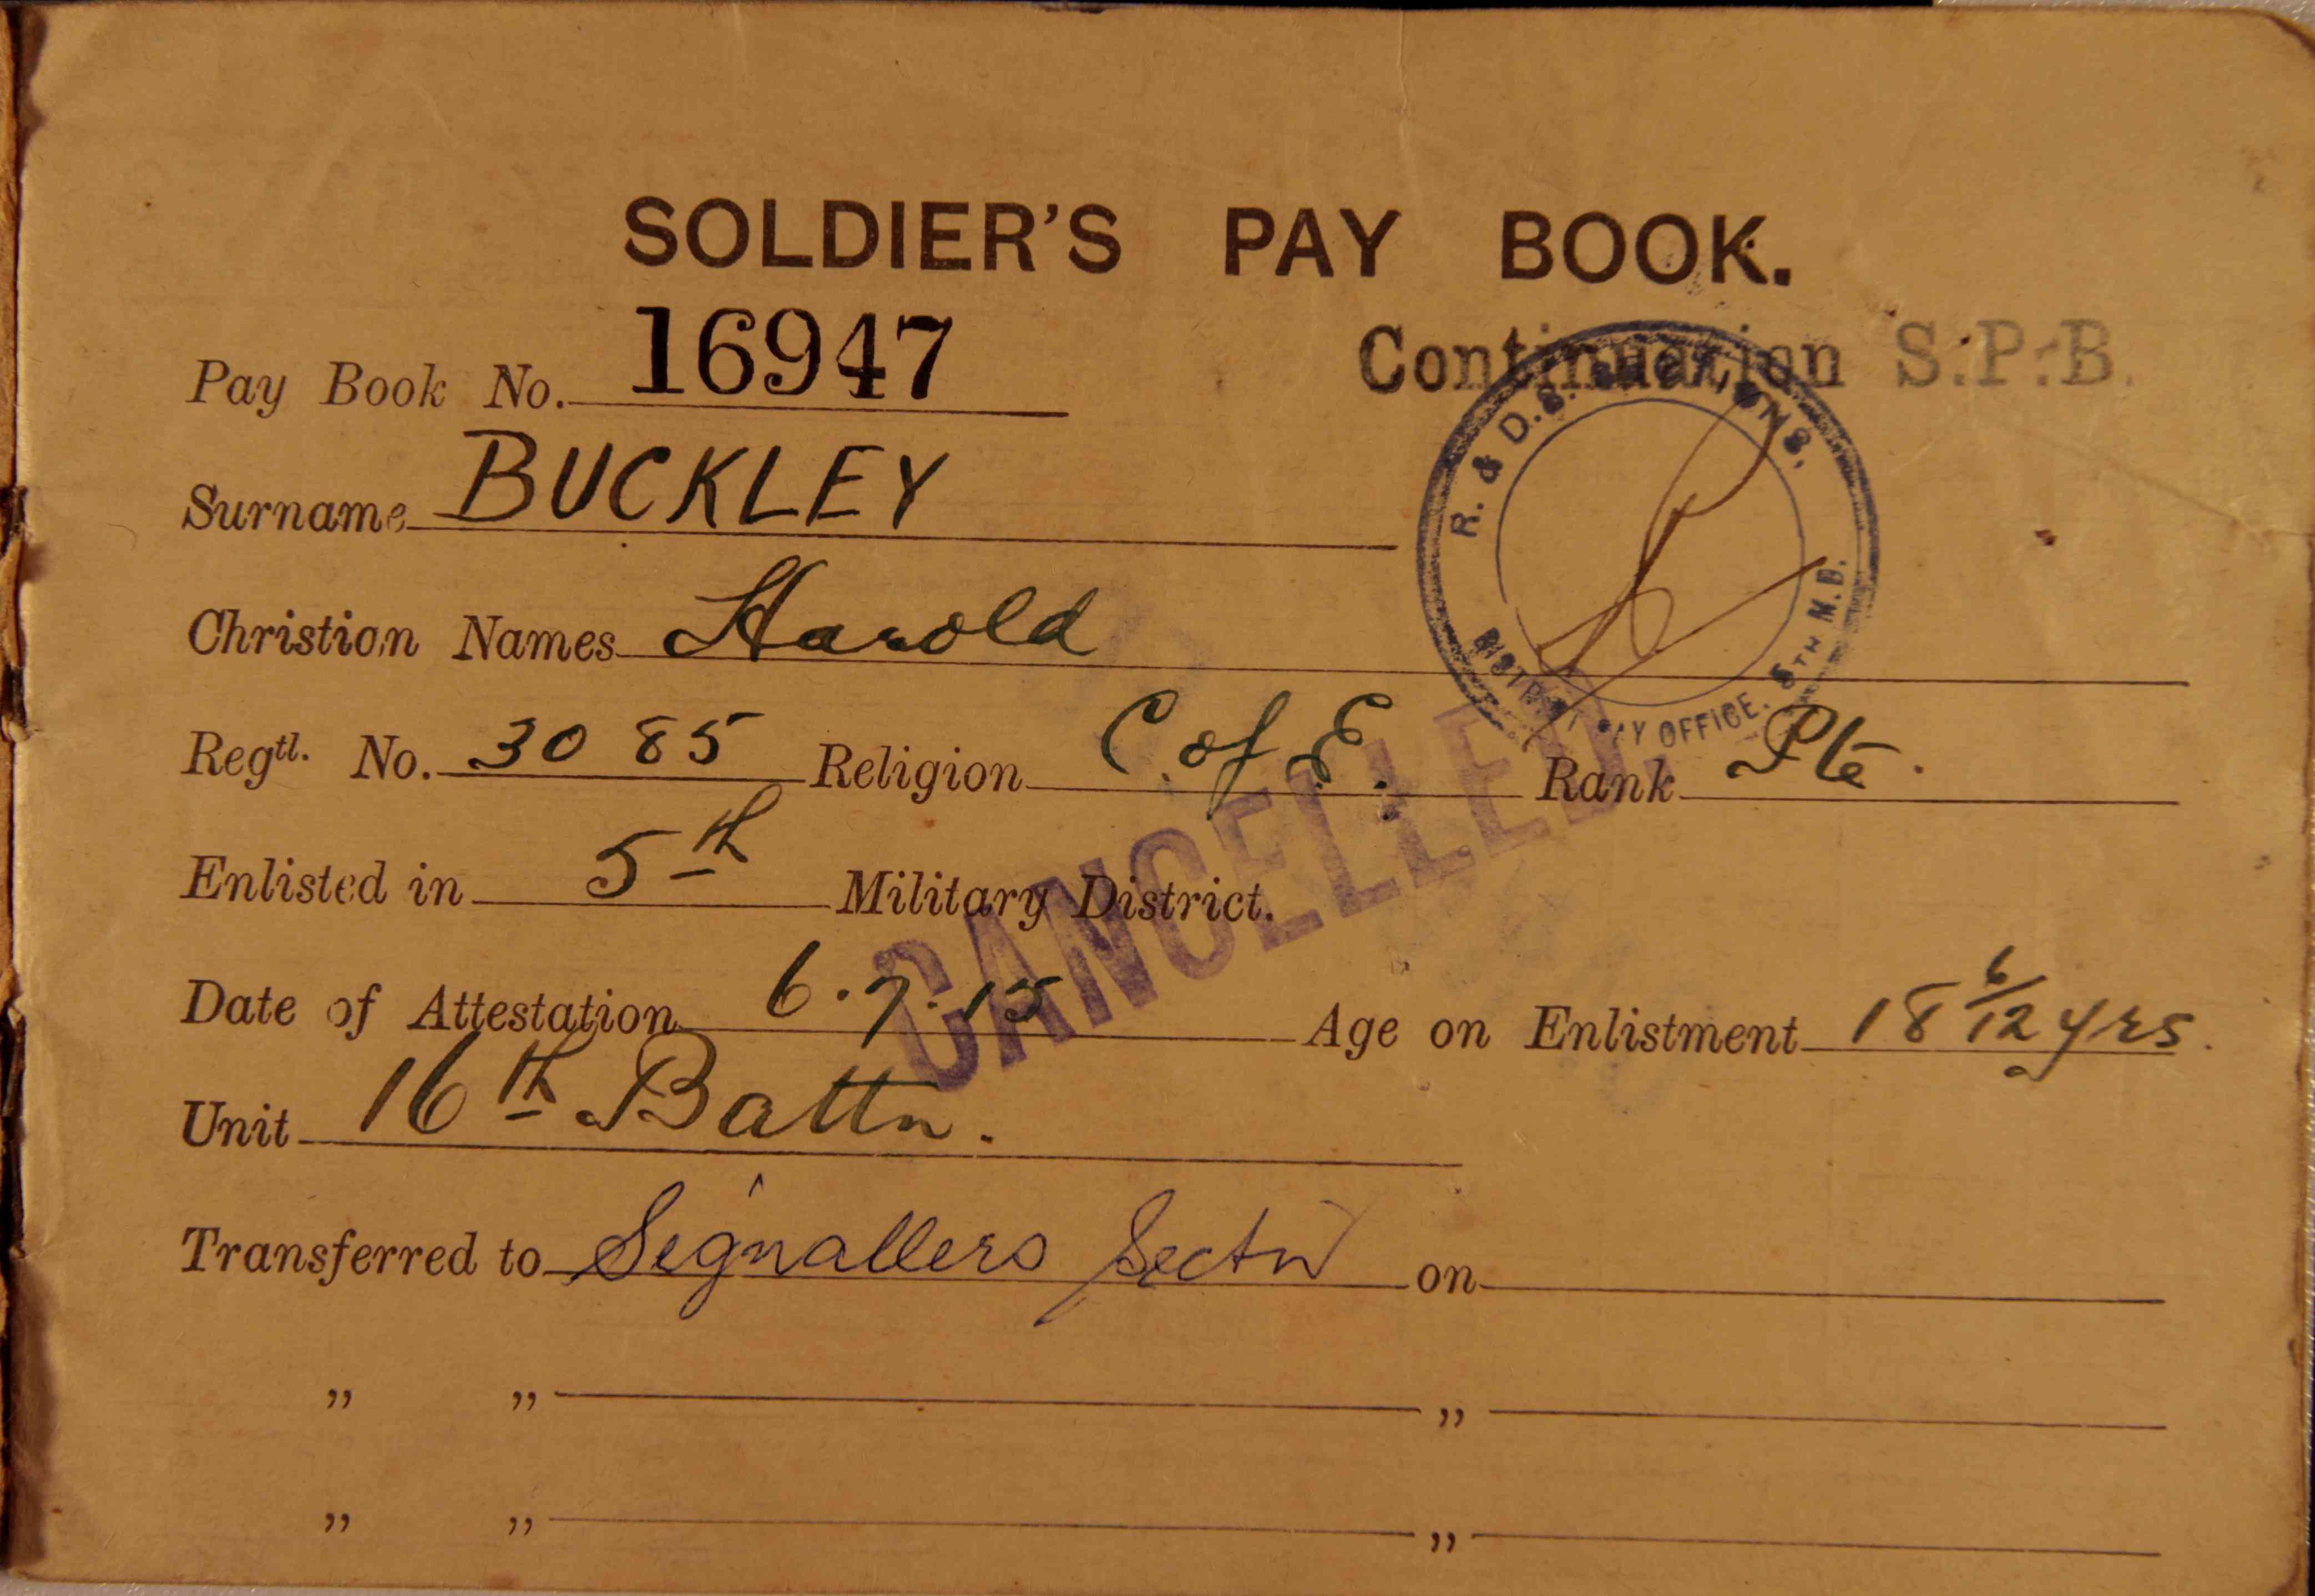 SOLDIER'S PAY BOOK.
Pay Book No. 16947
Continuation S.P.B.
R. & D.S.
DISTRICT PAY OFFICE. 5TH M.D.
Surname BUCKLEY
Christian Names Harold
Regtl. No. 3085 Religion C. of E. Rank Pte.
Enlisted in 5th Military District.
CANCELLED.
Date of Attestation 6.7.15 Age on Enlistment 18 6/12 yrs.
Unit 16th Battn.
Transferred to Signallers Sectn on
" " "
" " "